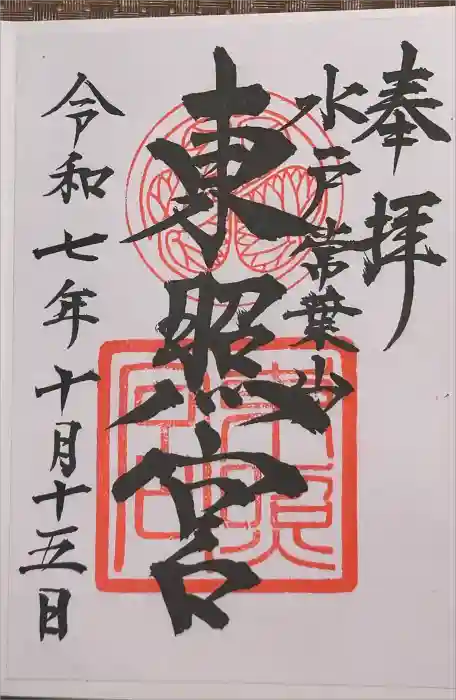 奉拝
水戸常葉山
東照宮
令和七年十月十五日